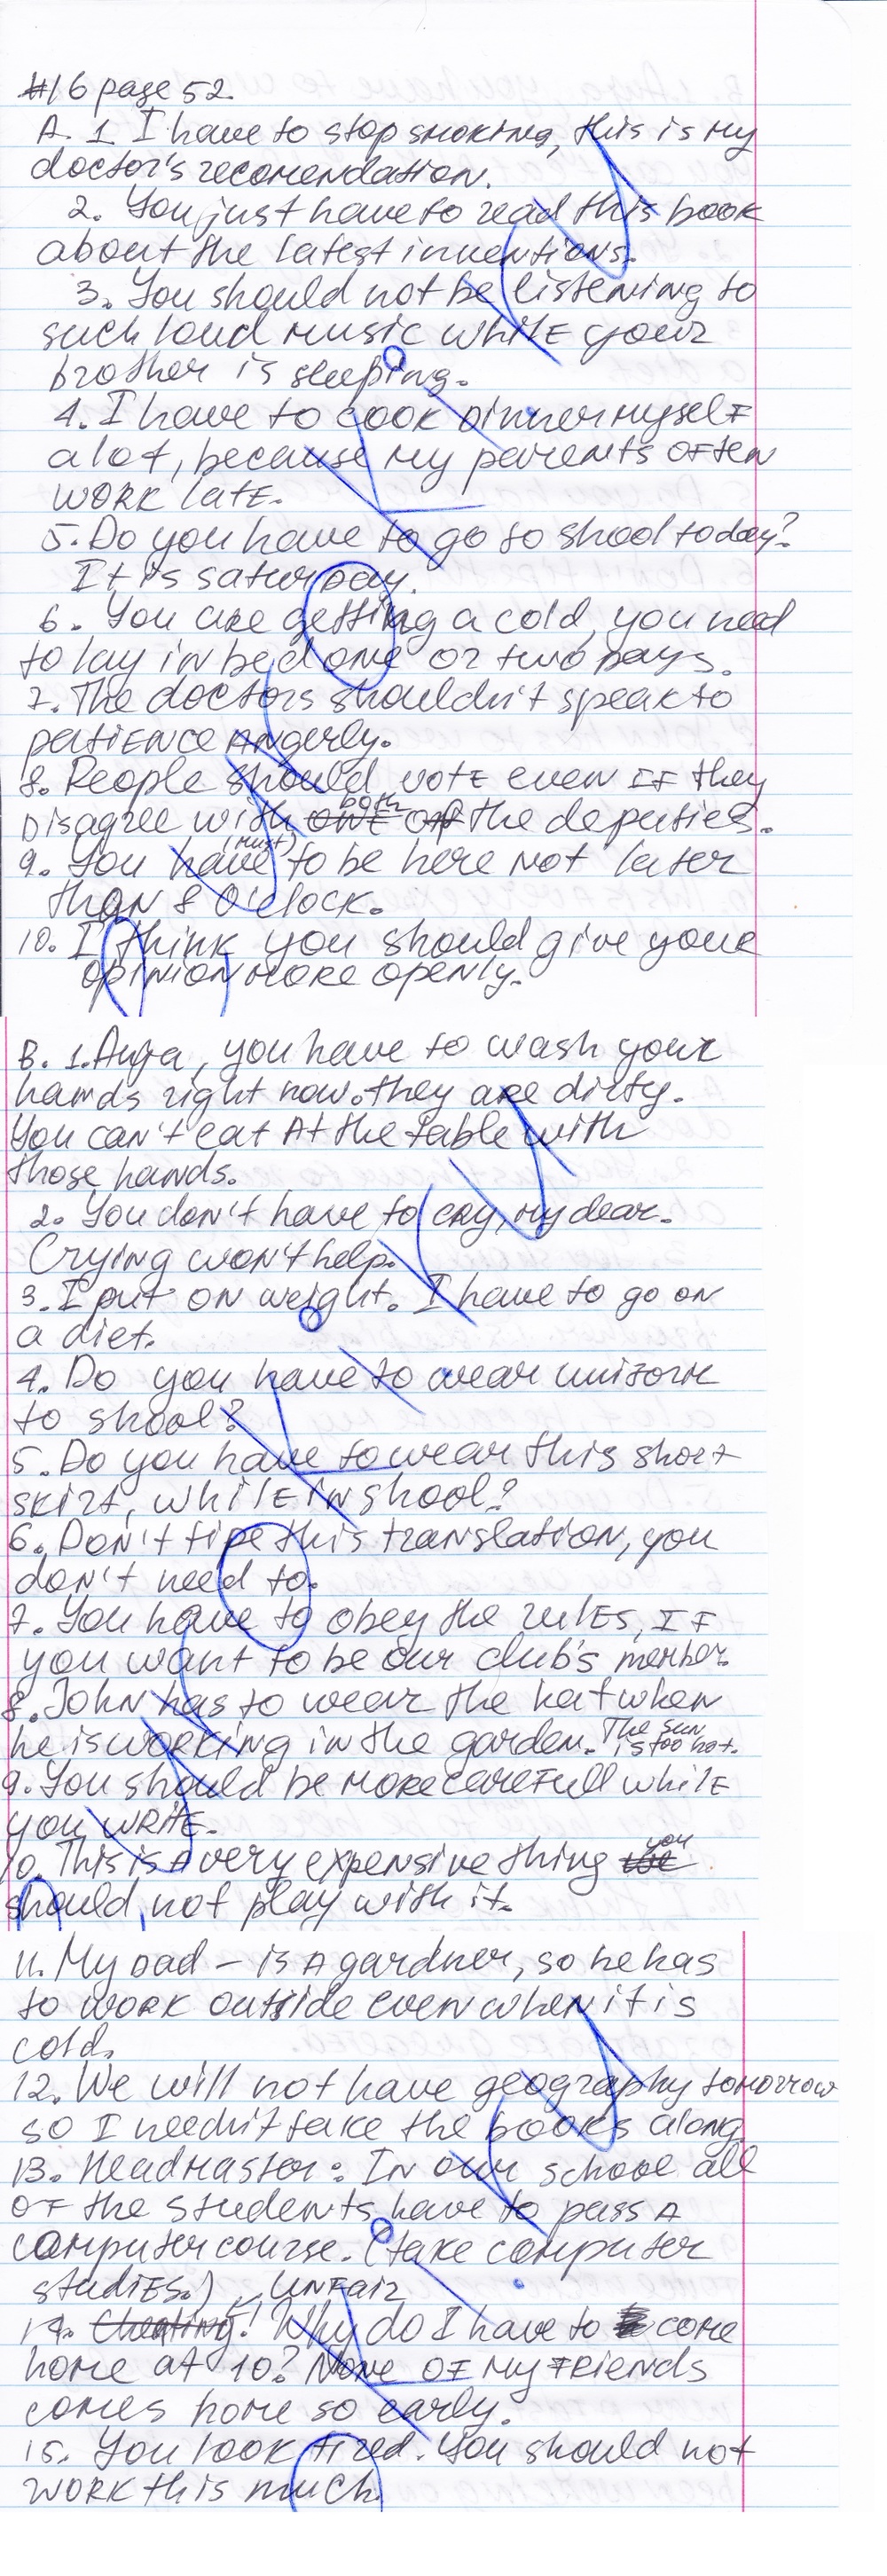 #16 page 52.
A. 1 I have to stop smoking, this is my
doctor's recomendation.
2. You just have to read this book
about the latest inventions.
3. You should not be listening to
such loud music while your
brother is sleeping.
4. I have to cook dinner myself
a lot, because my parents often
work late.
5. Do you have to go to shool today?
It is saturday.
6. You are getting a cold, you need
to lay in bed one or two days.
7. The doctors shouldn't speak to
patience angerly.
8. People should vote even if they
both
disagree with one of the deputies.
(must)
9. You have to be here not later
than 8 o'clock.
10. I think you should give your
opinion more openly.
B. 1. Anya, you have to wash your
hands right now. they are dirty.
You can't eat at the table with
those hands.
2. You don't have to cry, my dear.
Crying won't help.
3. I put on weight. I have to go on
a diet.
4. Do you have to wear uniform
to shool?
5. Do you have to wear this short
skirt, while in shool?
6. Don't tipe this translation, you
don't need to.
7. You have to obey the rules, if
you want to be our club's member.
8. John has to wear the hat when
he is working in the garden. The sun
is too hot.
9. You should be more carefull while
you write.
you
10. This is a very expensive thing
should not play with it.
11. My dad – is a gardner, so he has
to work outside even when it is
cold.
12. We will not have geography tomorrow
so I needn't take the books along.
13. Headmaster: In our school all
of the students have to pass a
computer course. (take computer
studies.)
Unfair
14. Cheating! Why do I have to come
home at 10? None of my friends
comes home so early.
15. You look tired. You should not
work this much.